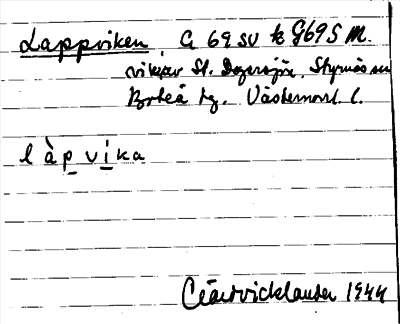 Lappviken, G 69 SV k G69 S M.
vik av St. Degersjön, Styrnäs sn
Boteå tg. Västernorrl. l.
l à p v i k a
1944